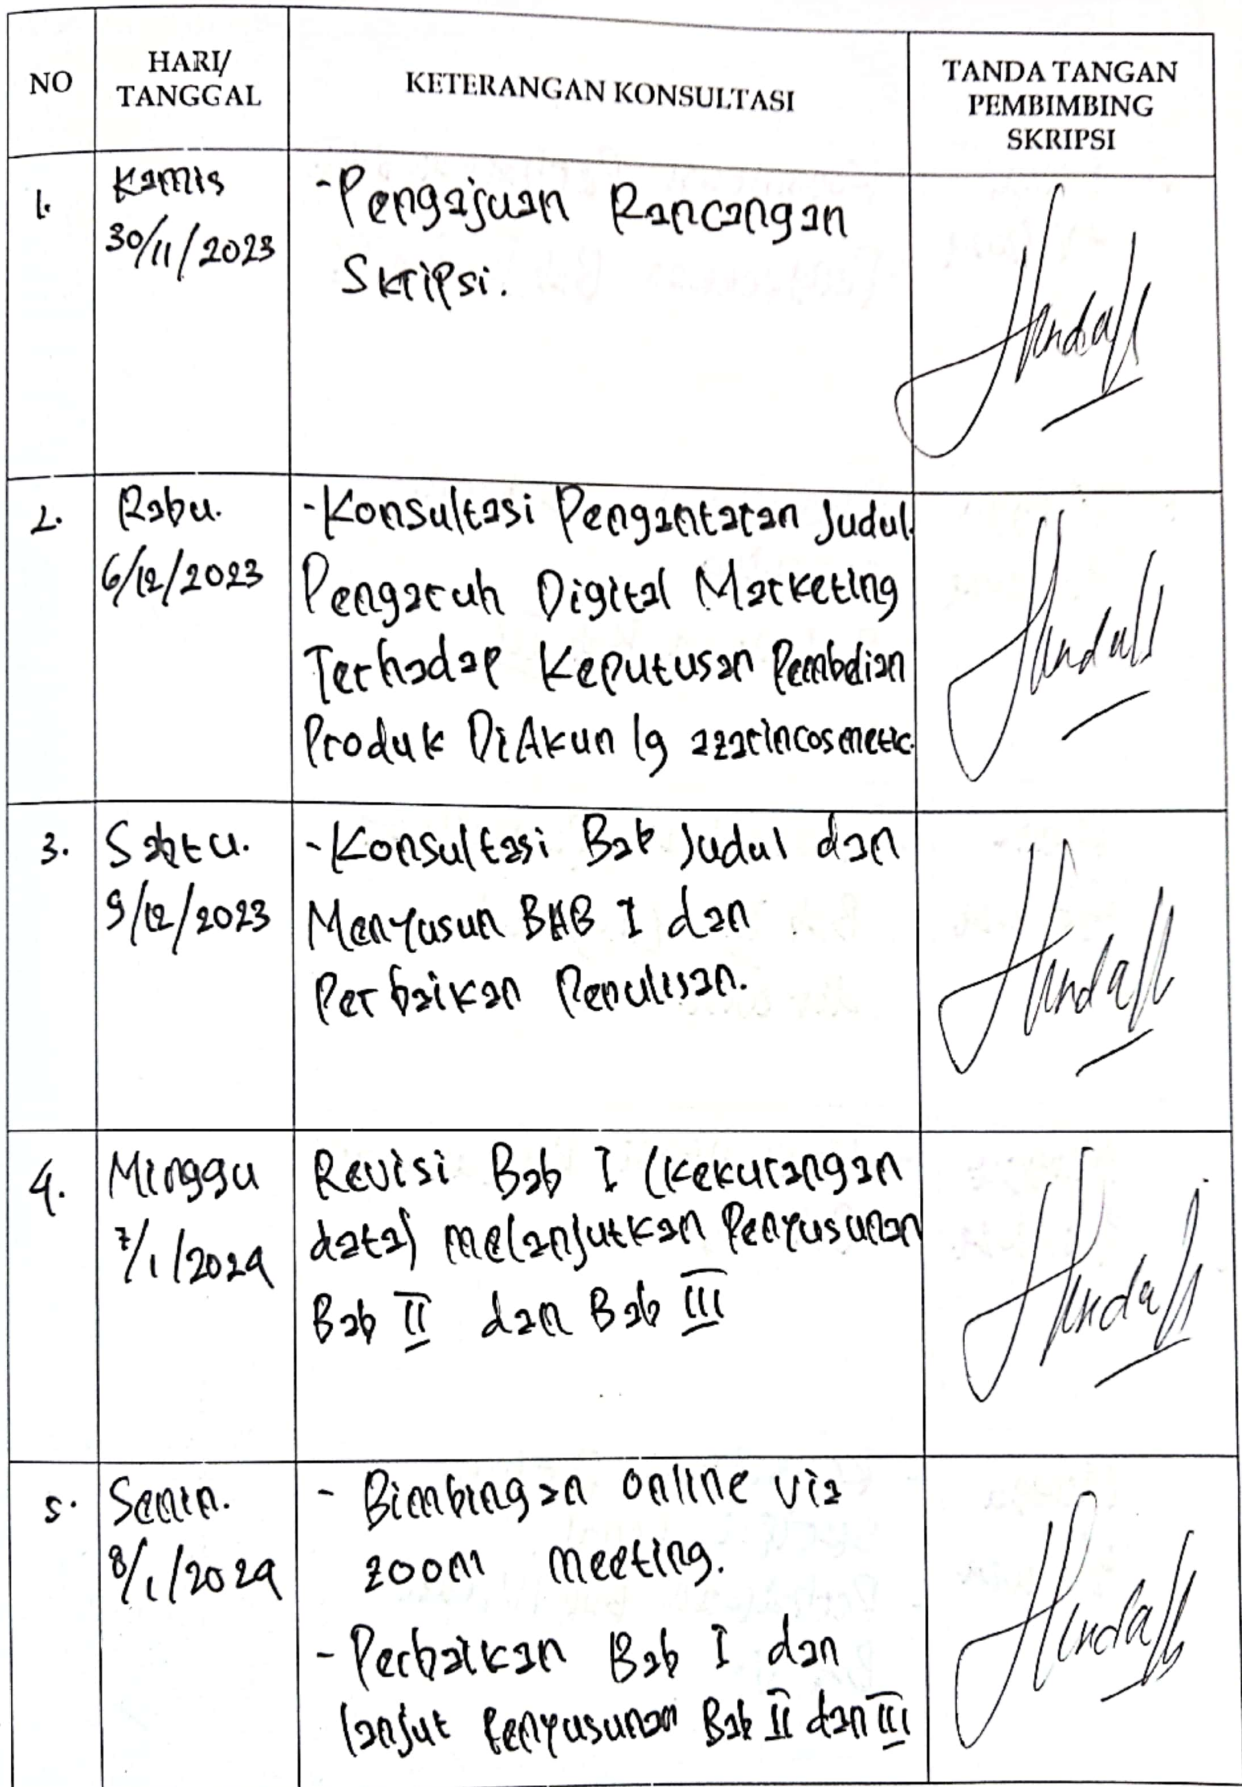 NO
HARI/
TANGGAL
KETERANGAN KONSULTASI
TANDA TANGAN
PEMBIMBING
SKRIPSI
1.
Kamis
30/11/2023
- Pengajuan Rancangan
Skripsi.
2.
Rabu.
6/12/2023
- Konsultasi Pengantaran Judul.
Pengaruh Digital Marketing
Terhadap Keputusan Pembelian
Produk DiAkun Ig azarincosmetic.
3.
Sabtu.
9/12/2023
- Konsultasi Bab Judul dan
Menyusun BAB I dan
Perbaikan Penulisan.
4.
Minggu
7/1/2024
Revisi Bab I (Kekurangan
data) melanjutkan Penyusunan
Bab II dan Bab III
5.
Senin.
8/1/2024
- Bimbingan online via
zoom meeting.
- Perbaikan Bab I dan
lanjut Penyusunan Bab II dan III